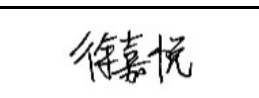 徐嘉悦